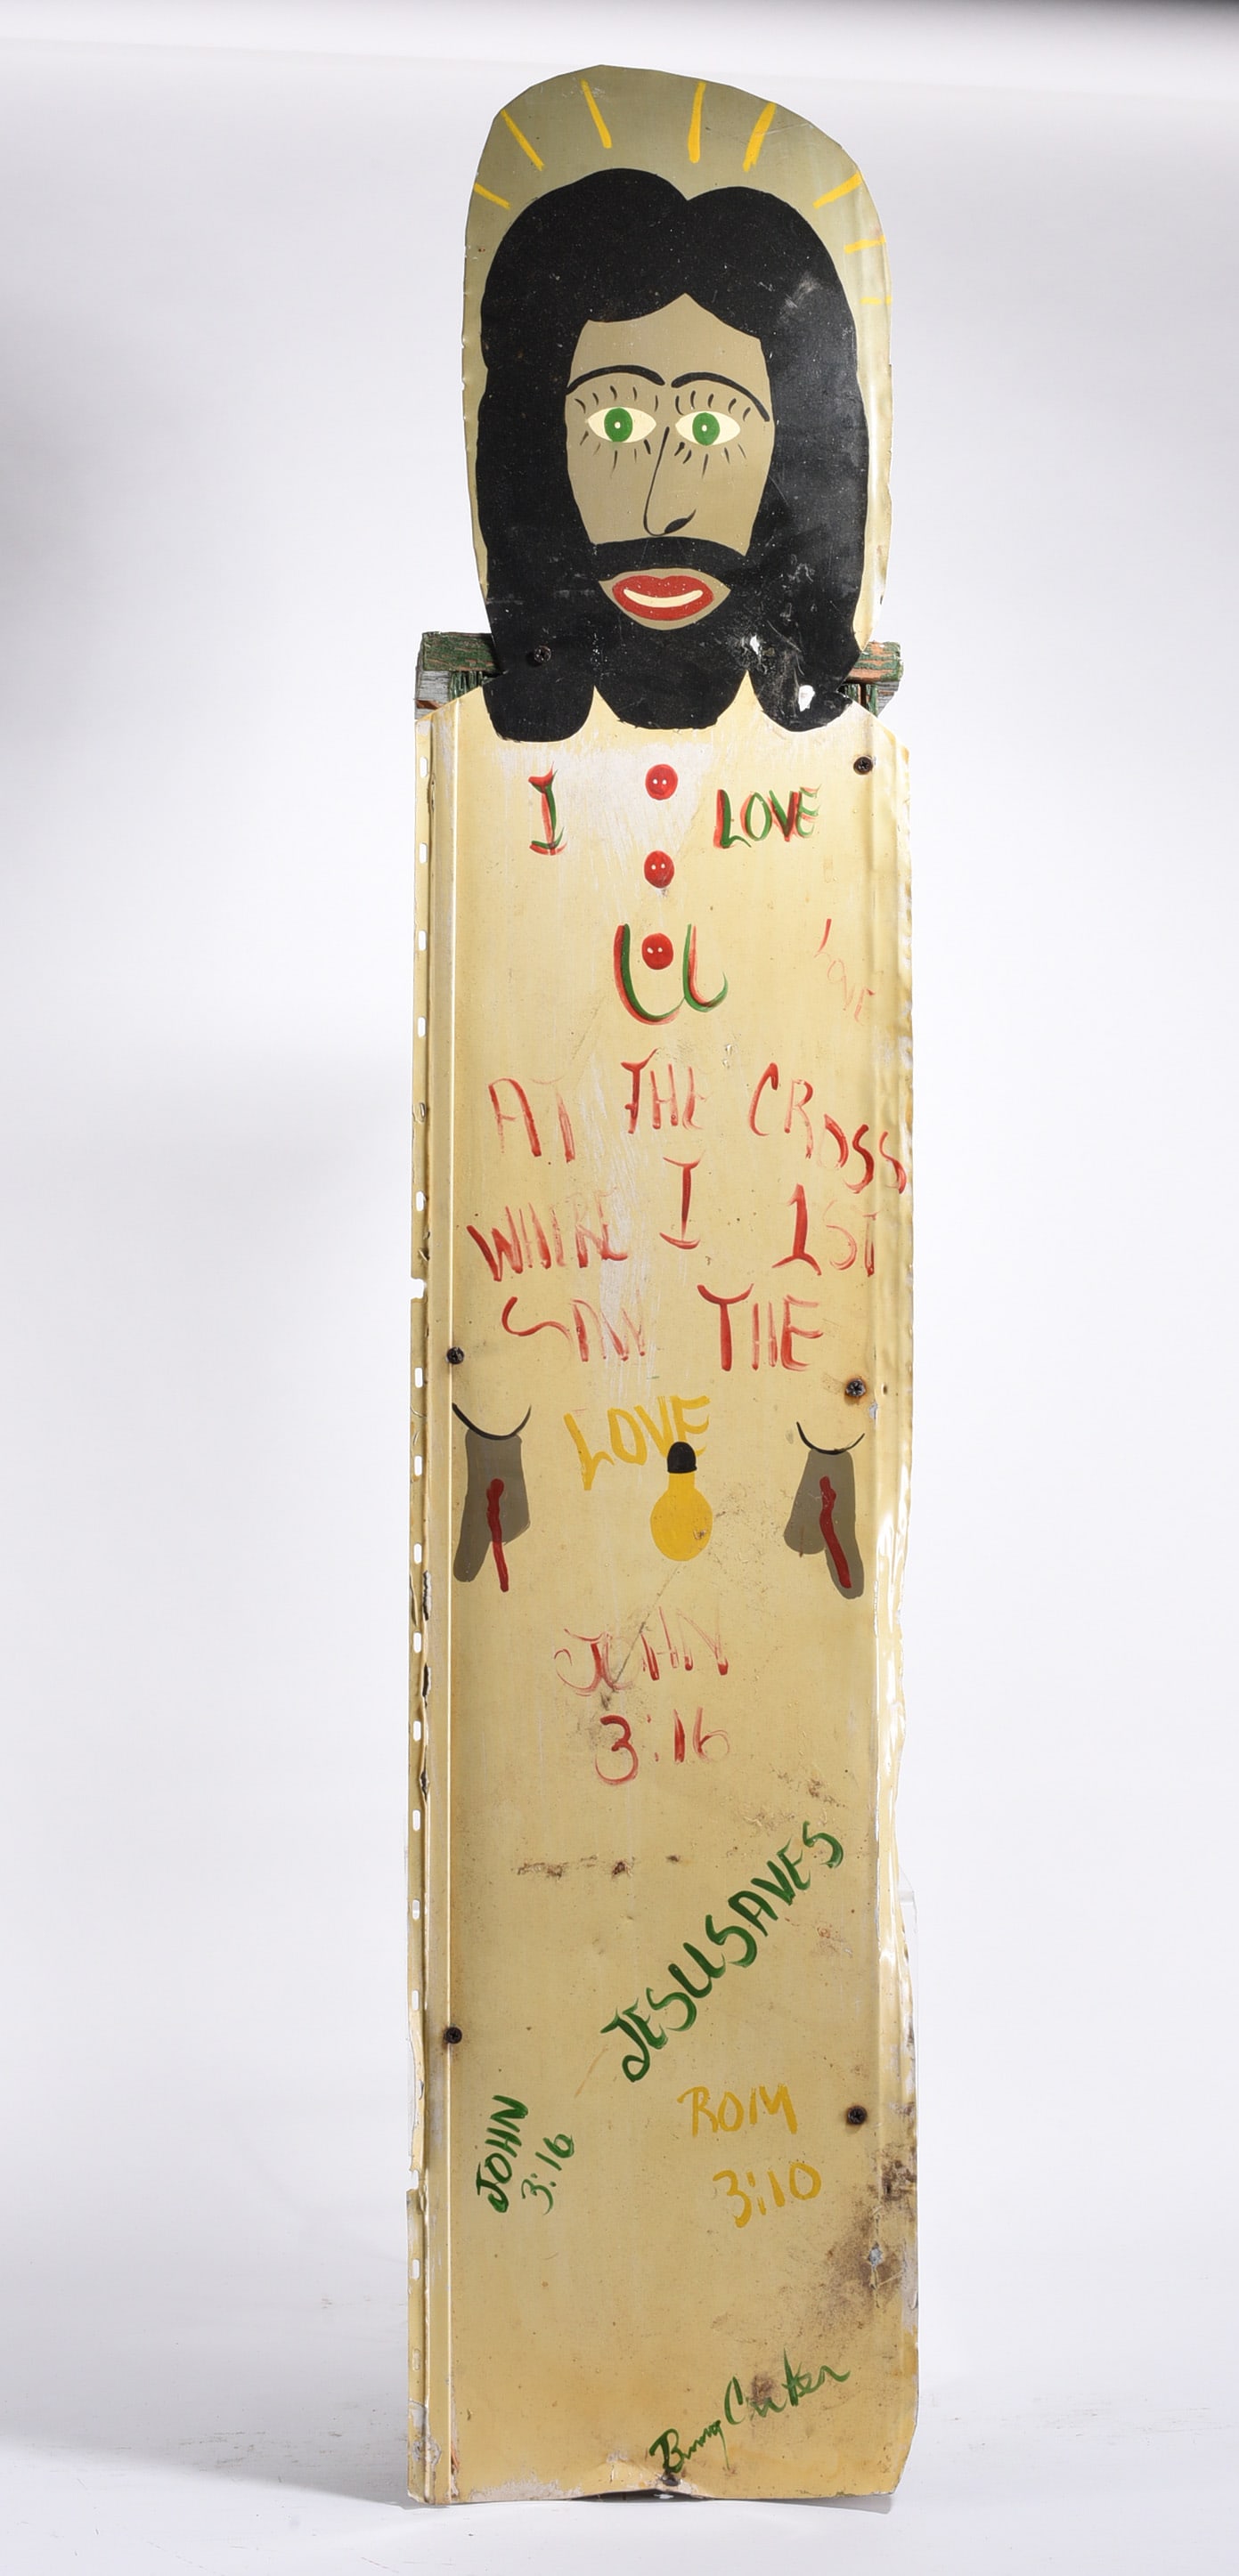 I LOVE
U
LOVE
AT THE CROSS
WHERE I 1ST
SAW THE
LOVE
JOHN
3:16
JESUSAVES
JOHN
3:16
ROM
3:10